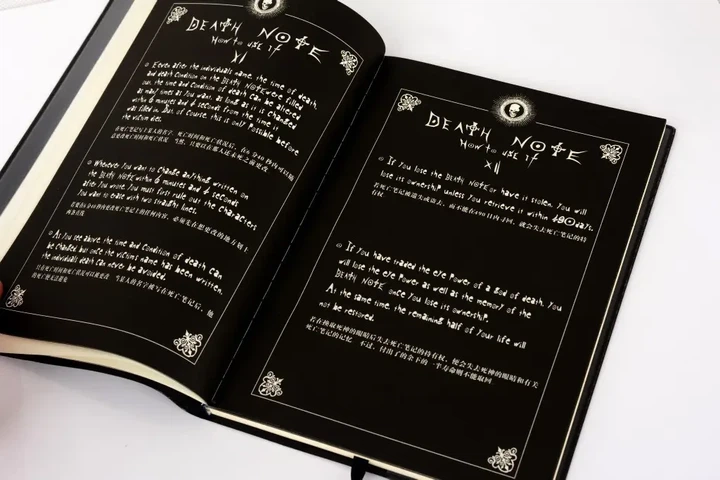 DEATH NOTE
How to use it
XI
Even after the individuals name, the time of death,
and death condition on the DEATH NOTE were filled
out, the time and condition of death can be altered
as many times as you want, as long as it is changed
within 6 minutes and seconds from the time it
was filled in. But, of course, this is only possible before
在死亡笔记写下某人的名字、死亡时间和死亡状况后，在6分40秒内可以随
死亡时间和死亡状况
Whenever you want to change anything written on
the DEATH NOTE within 6 minutes and seconds
after you wrote, you must first rule out the characters
you want to erase with two straight lines.
若要在6分40秒内更改死亡笔记上的任何内容，必须先在想更改的地方划上
两条直线
As you see above, the time and condition of death can
be changed, but once the victims name has been written,
the individuals death can never be avoided.
只有死亡时间和死亡状况可以更改，当某人的名字被写在死亡笔记后，他
的死亡便无法避免
DEATH NOTE
How to use it
XII
If you lose the DEATH NOTE or have it stolen, you will
lose its ownership unless you retrieve it within 490 days.
若死亡笔记被遗失或盗去，而不能在490日内寻回，就会失去死亡笔记的持
有权
If you have traded the eye power of a god of death, you
will lose the eye power as well as the memory of the
DEATH NOTE, once you lose its ownership.
At the same time, the remaining half of your life will
not be restored.
若在换取死神的眼睛后失去死亡笔记的持有权，便会失去死神的眼睛和有关
死亡笔记的记忆 不过，付出了的余下的一半寿命则不能取回